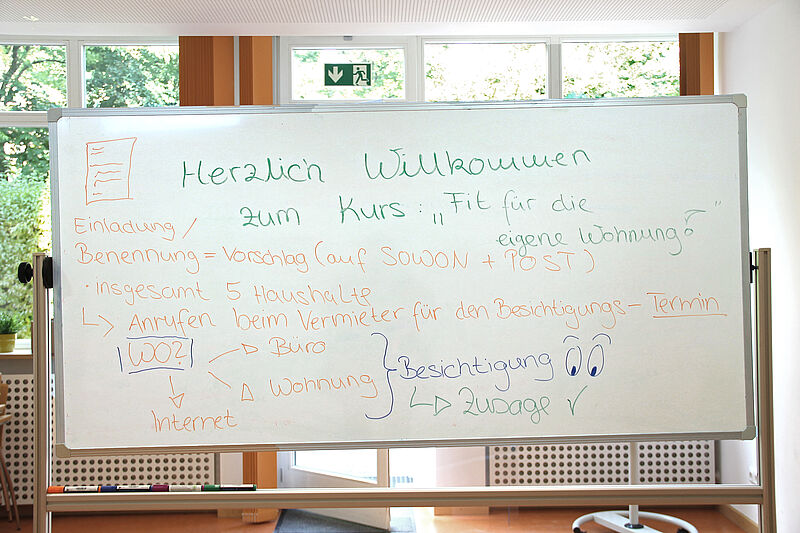 Herzlich Willkommen
zum Kurs: „Fit für die
eigene Wohnung"
Einladung /
Benennung = Vorschlag (auf SOWON + POST)
· insgesamt 5 Haushalte
↳ Anrufen beim Vermieter für den Besichtigungs-Termin
WO?
→ Büro
→ Wohnung
→ Internet
} Besichtigung
↳ Zusage ✓